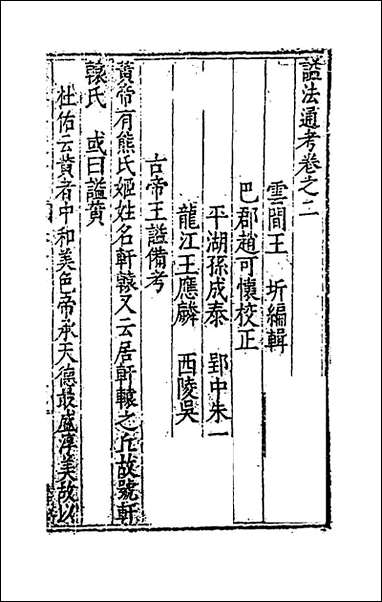 謚法通考卷之二
雲間王　圻編輯
巴郡趙可懷校正
平湖孫成泰　郢中朱一
龍江王應麟　西陵吳
古帝王謚備考
黃帝有熊氏姬姓名軒轅又云居軒轅之丘故號軒
轅氏　或曰謚黃
杜佑云黃者中和美色帝承天德最盛淳美故以